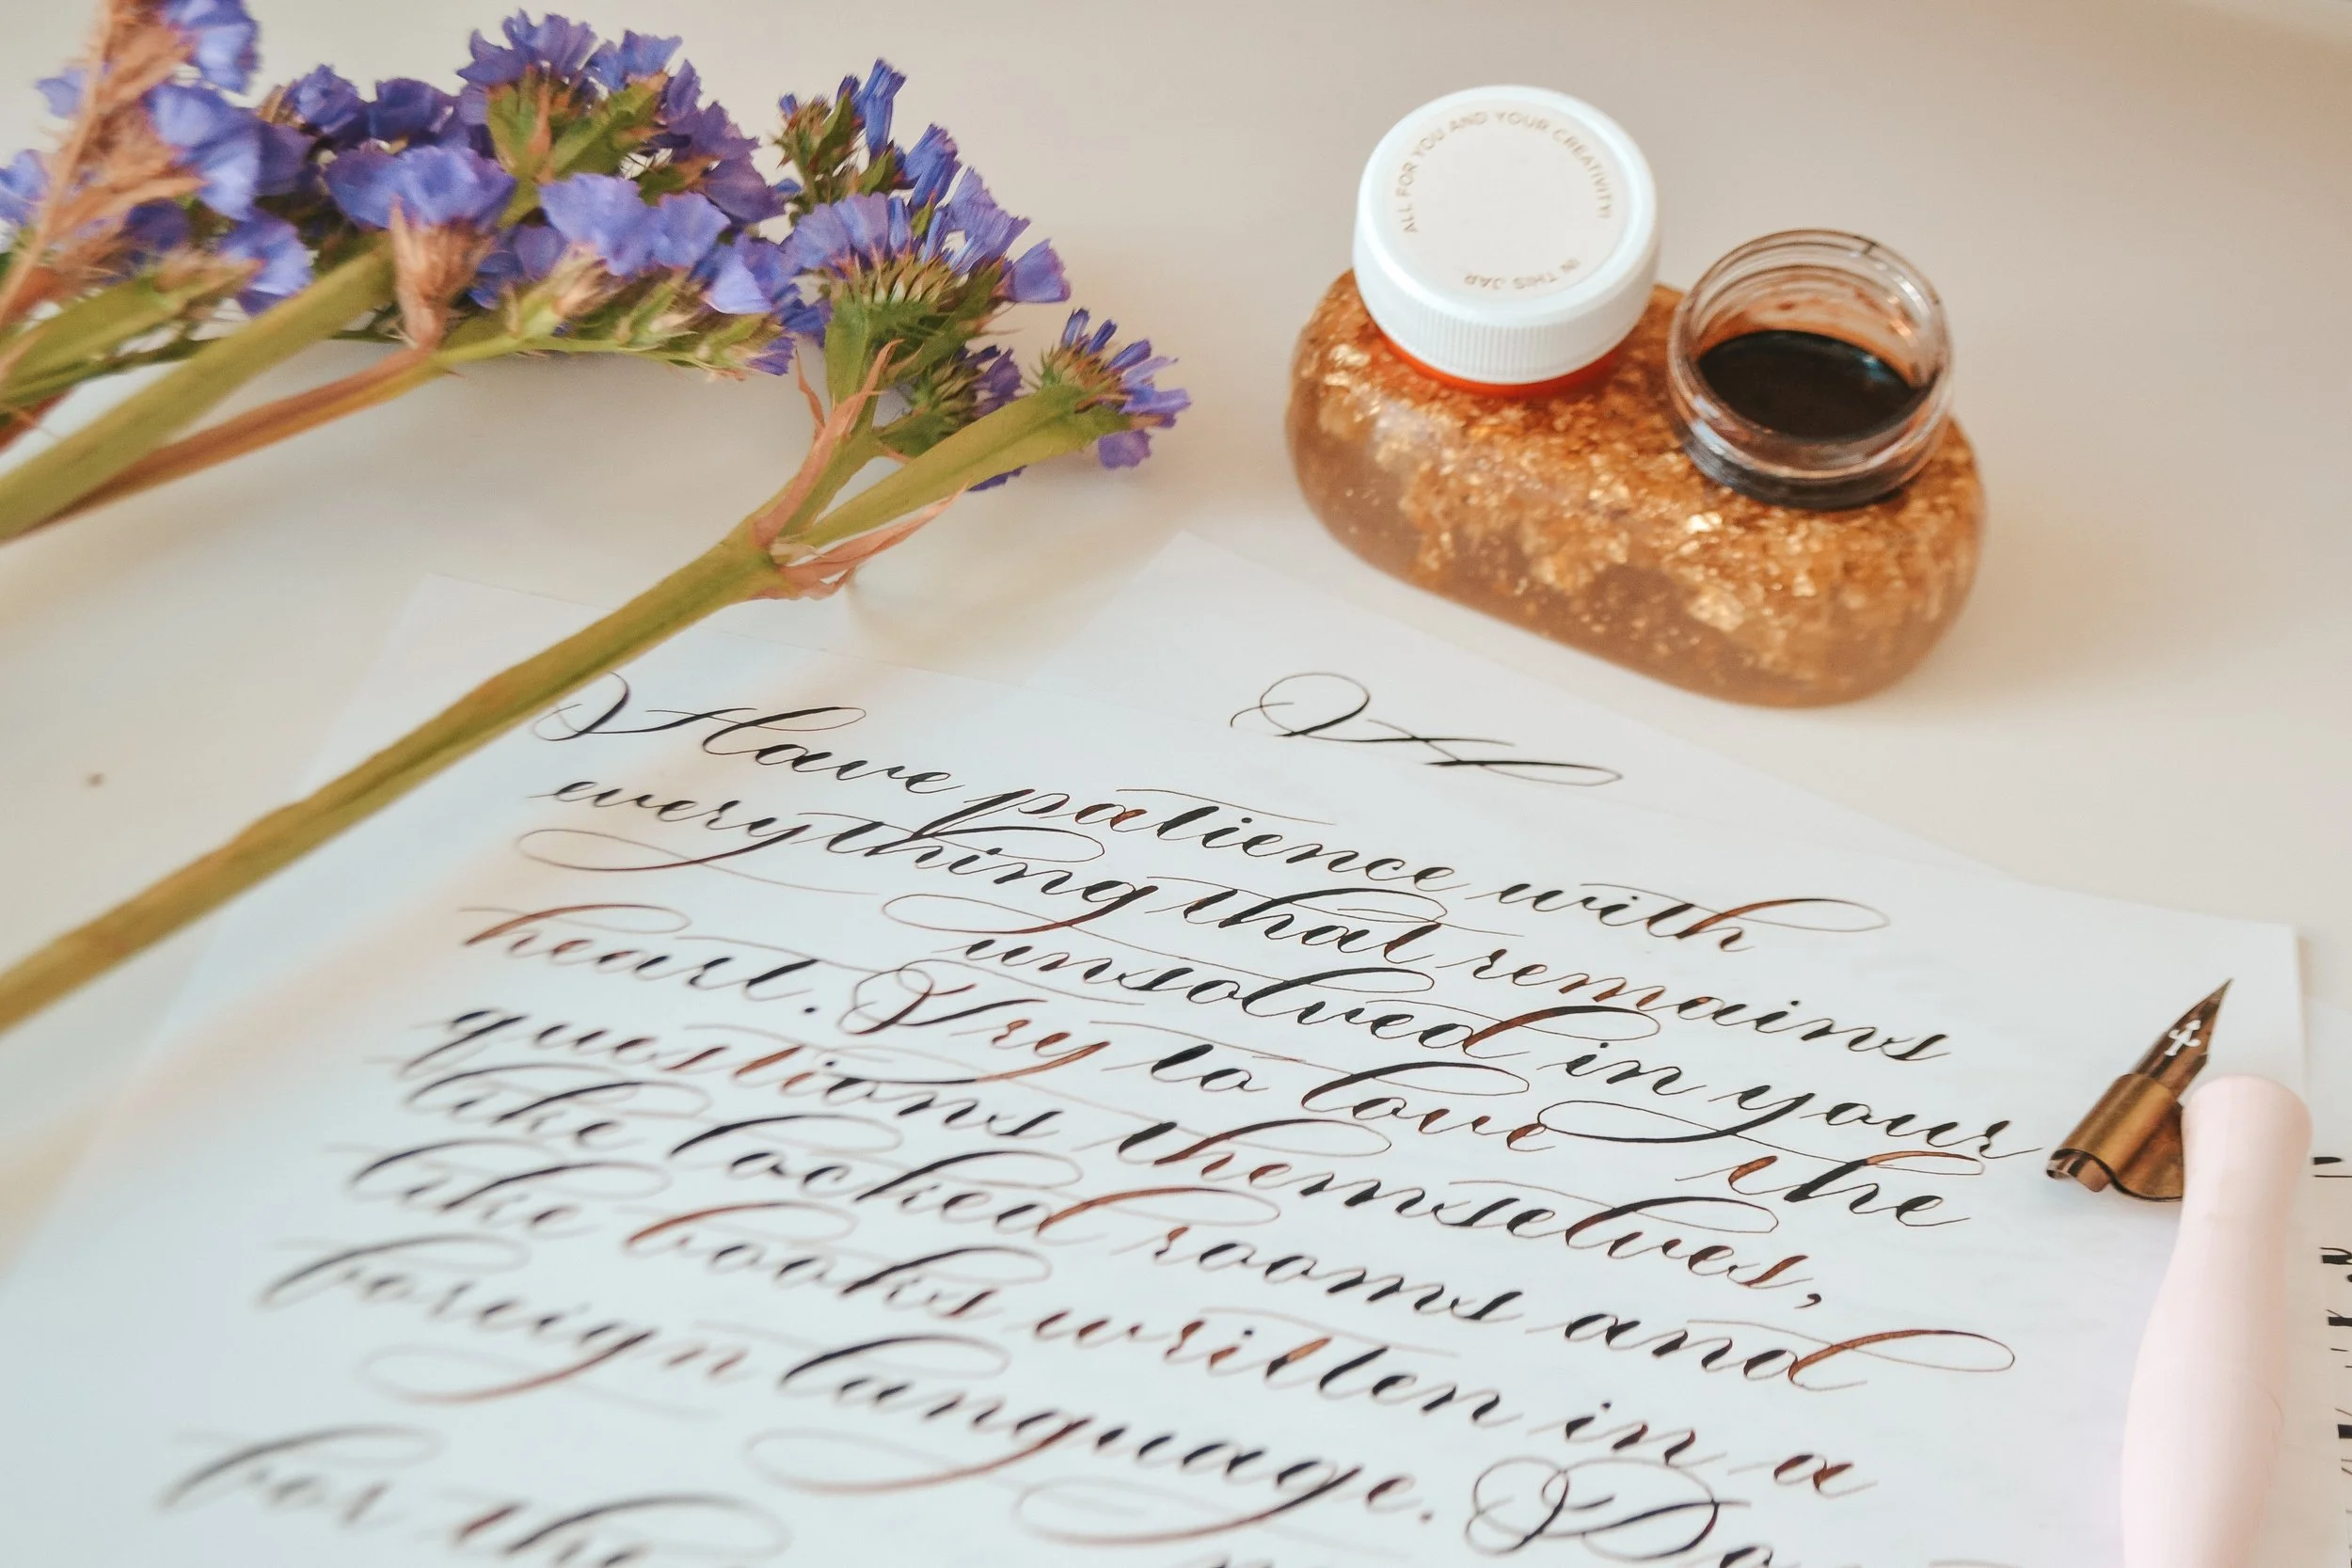 ALL FOR YOU AND YOUR CREATIVITY!
IN THIS JAR
Have patience with
everything that remains
unsolved in your
heart. Try to love the
questions themselves,
like locked rooms and
like books written in a
foreign language. Do
for the